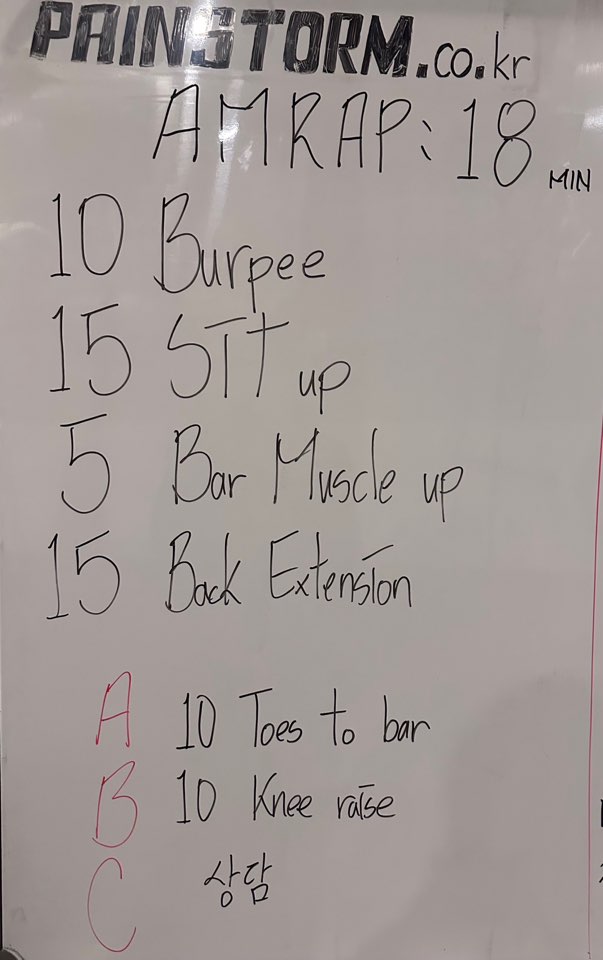 PAINSTORM.co.kr
AMRAP: 18 MIN
10 Burpee
15 SIt up
5 Bar Muscle up
15 Back Extension
A 10 Toes to bar
B 10 Knee raise
C 상담